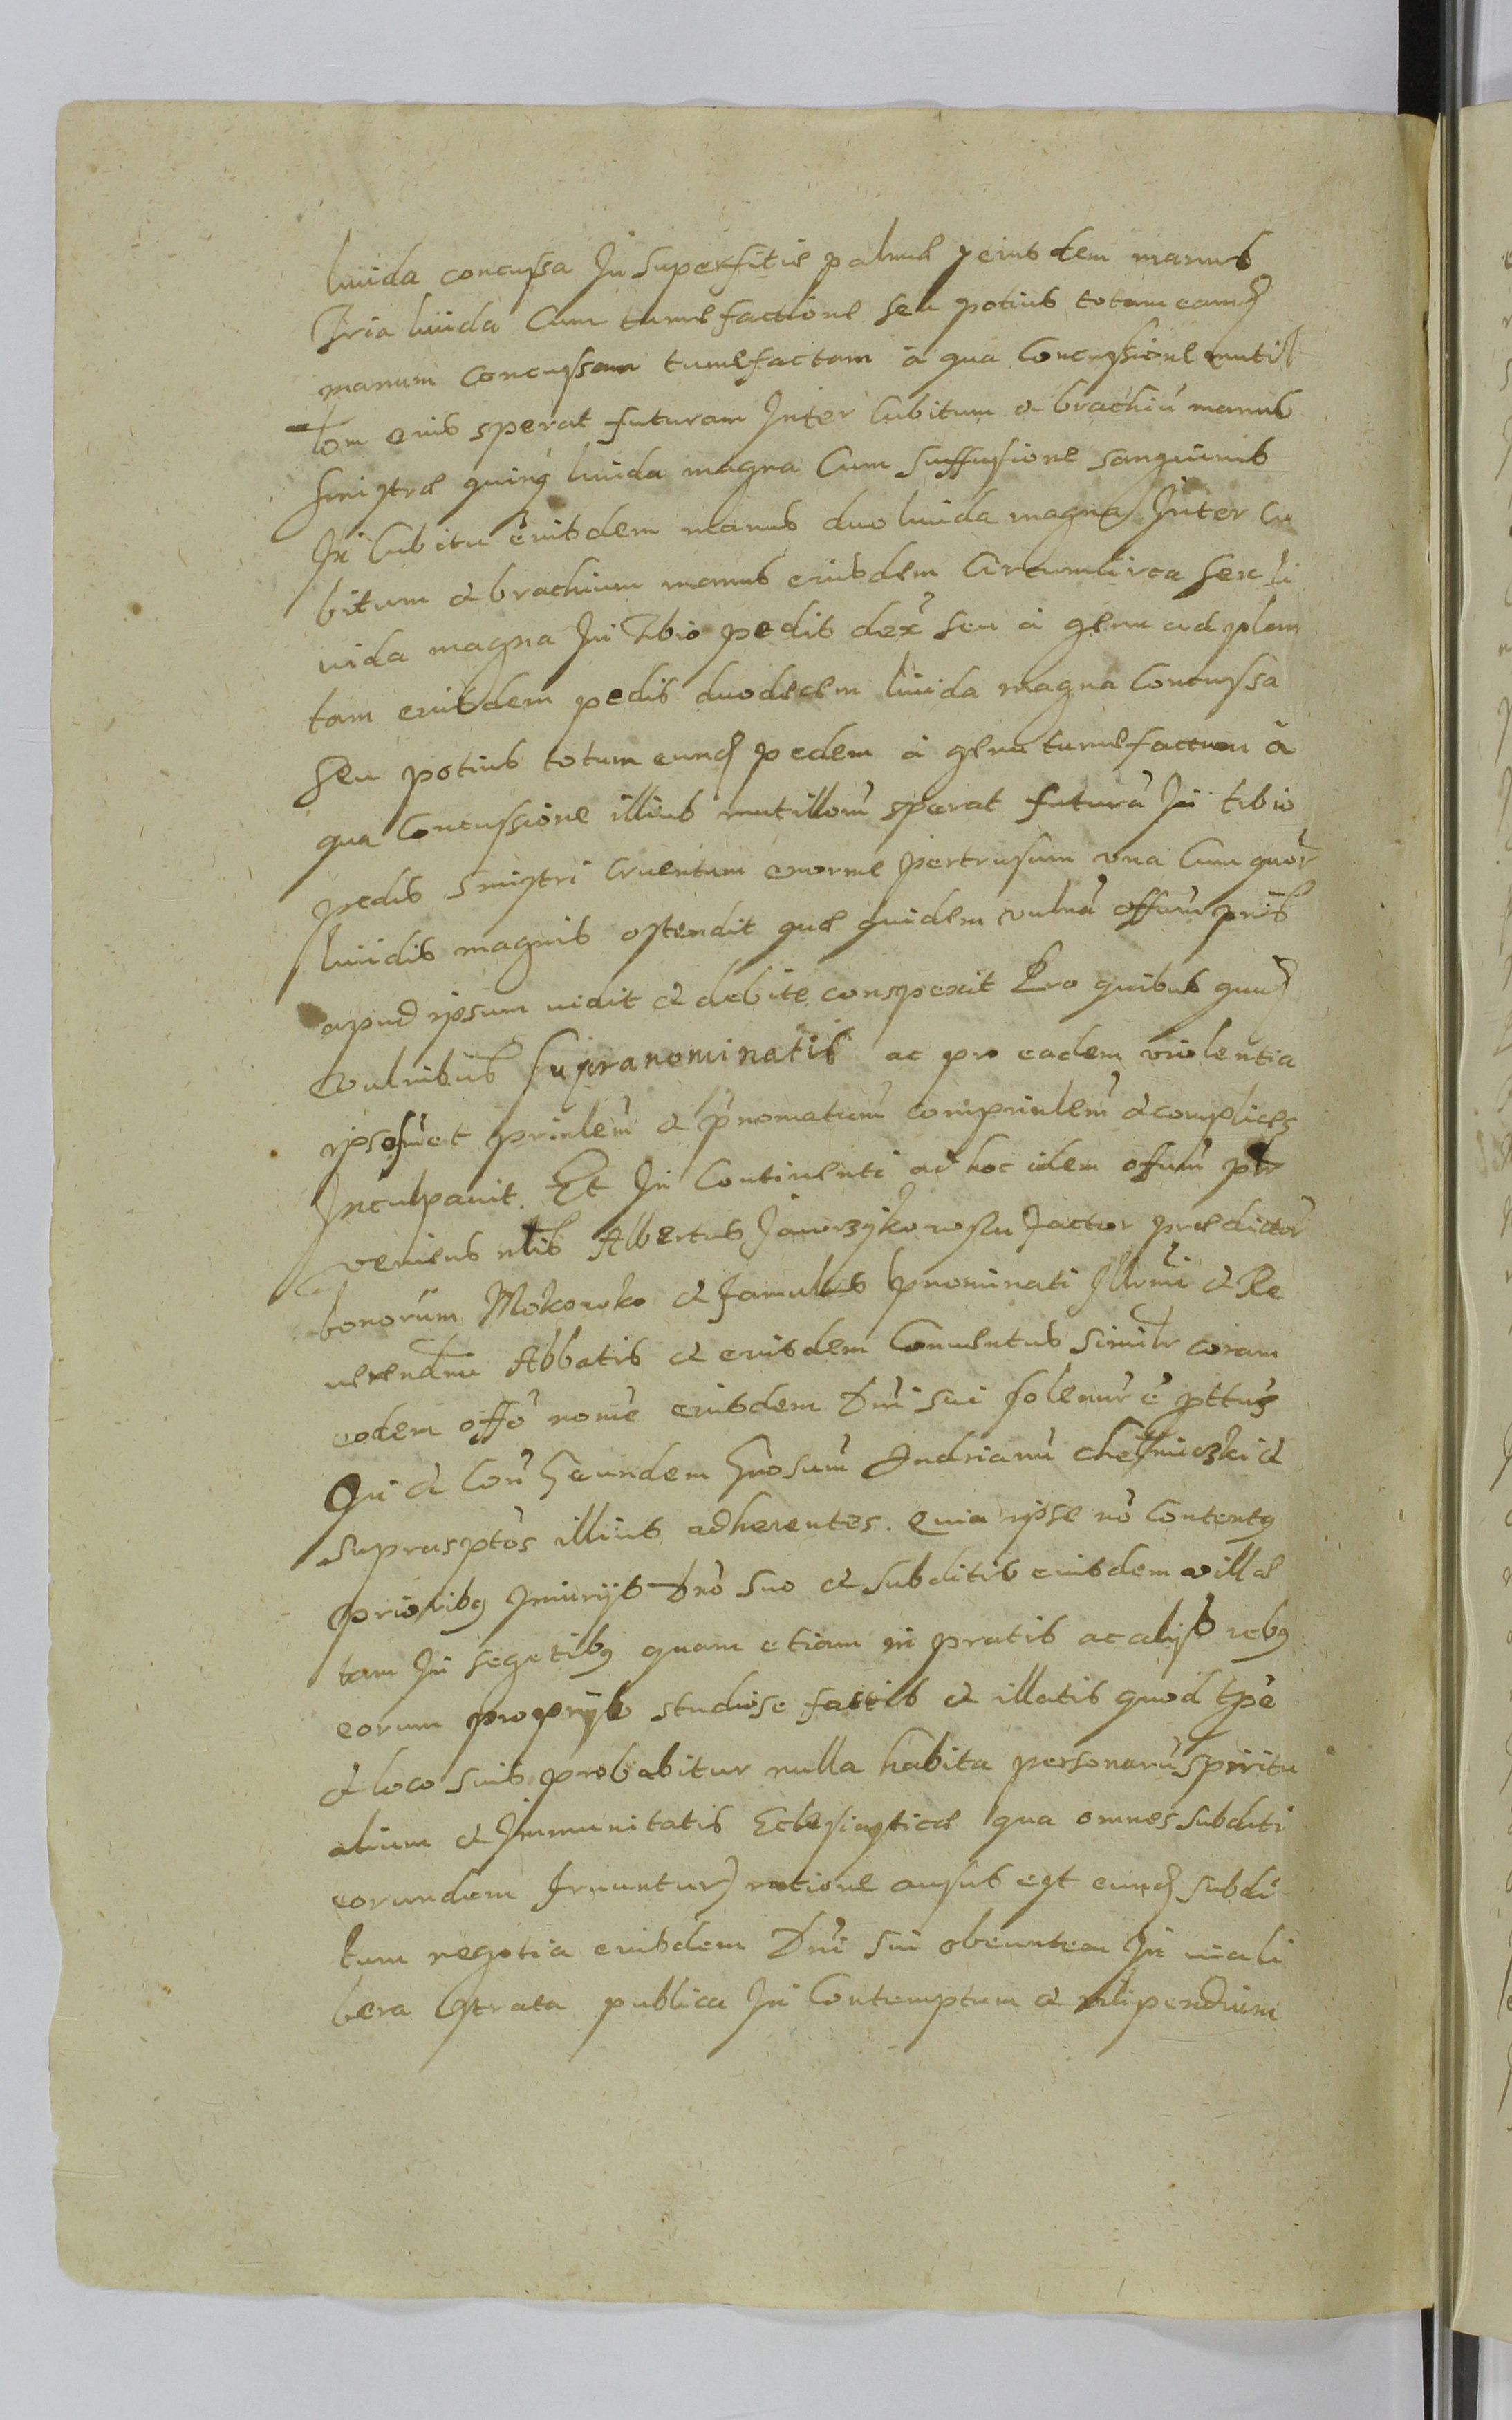 liuida concussa In superfitie palmae eiusdem manus
Tria liuida Cum tumefactione seu potius totam eamd
manum concussam tumefactam à qua Concussione mutil
lom eius sperat futuram Inter Cubitum & brachiũ manus
sinistrae quinq liuida magna Cum suffusione sanguinis
In Cubitu eiusdem manus duo liuida magna Inter Cu
bitum & brachium manus eiusdem Circumcirca sex li
uida magna In Tibio pedis dex̃ seu à genu ad plan
tam eiusdem pedis duodecem liuida magna Concussa
seu potius totum eund pedem à genu tumefactum à
qua Concussione illius mutillom̃ sperat futurã In tibio
pedis sinistri Cruentum enorme pertrusum vna Cum quor̃
liuidis magnis ostendit quae quidem vulnã offium pñs
apud ipsum uidit & debite conspexit Pro quibus quid
vulnibus supranominatis ac pro eadem violentia
ipsosmet prinlem̃ & p̃nomatum comprinlem̃ & complices
Inculpauit. Et In Continenti ad hoc idem offum̃ ptr
veniens nlis Albertus Jaworzykowski factor praedictor̃
bonorum Mokowko & famulus pnominati Illrmi & Re
uerendmi Abbatis & eiusdem Conuentus similr coram
eodem offõ noñe eiusdem Dñi sui solenñr ẽ pttus
Qui & Coñ Eundem Gnosum Andrianũ Chełmiczki &
suprasptos illius adherentes. Quia ipse nõ Contentq
prioribq Iniurijs Dnõ suo & subditis eiusdem villae
tam In segetibq quam etiam in pratis ac alijs rebq
eorum proprijs studiose factis & illatis quod tpe
& loco suis probabitur nulla habita personarũ spiritu
alium & Immunitatis Eclesiasticae qua omnes subditi
eorundem fruuntur) ratione ausus est eund subdi
tum negotia eiusdem Dñi sui obeuntem In uia li
bera strata publica In Contemptum & vilipendium